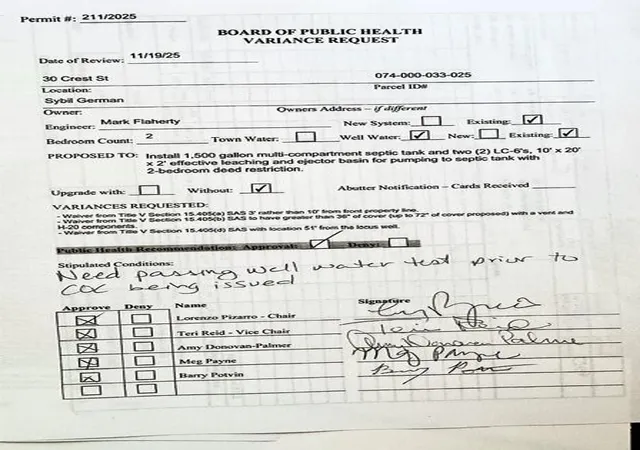 Permit #: 211/2025
BOARD OF PUBLIC HEALTH
VARIANCE REQUEST
Date of Review: 11/19/25
30 Crest St 074-000-033-025
Location: Parcel ID#
Sybil German
Owner: Owners Address – if different
Engineer: Mark Flaherty New System: Existing: ✓
Bedroom Count: 2 Town Water: Well Water: ✓ New: Existing: ✓
PROPOSED TO: Install 1,500 gallon multi-compartment septic tank and two (2) LC-6's, 10' x 20'
x 2' effective leaching and ejector basin for pumping to septic tank with
2-bedroom deed restriction.
Upgrade with: Without: ✓ Abutter Notification – Cards Received
VARIANCES REQUESTED:
- Waiver from Title V Section 15.405(a) SAS 3' rather than 10' from front property line.
- Waiver from Title V Section 15.405(b) SAS to have greater than 36" of cover (up to 72" of cover proposed) with a vent and
H-20 components.
- Waiver from Title V Section 15.405(d) SAS with location 51' from the locus well.
Public Health Recommendation: Approval: ✓ Deny:
Stipulated Conditions:
Need passing well water test prior to
COC being issued
Approve Deny Name Signature
Lorenzo Pizarro - Chair
Teri Reid - Vice Chair Teri Reid
Amy Donovan-Palmer Amy Donovan Palmer
Meg Payne Meg Payne
Barry Potvin